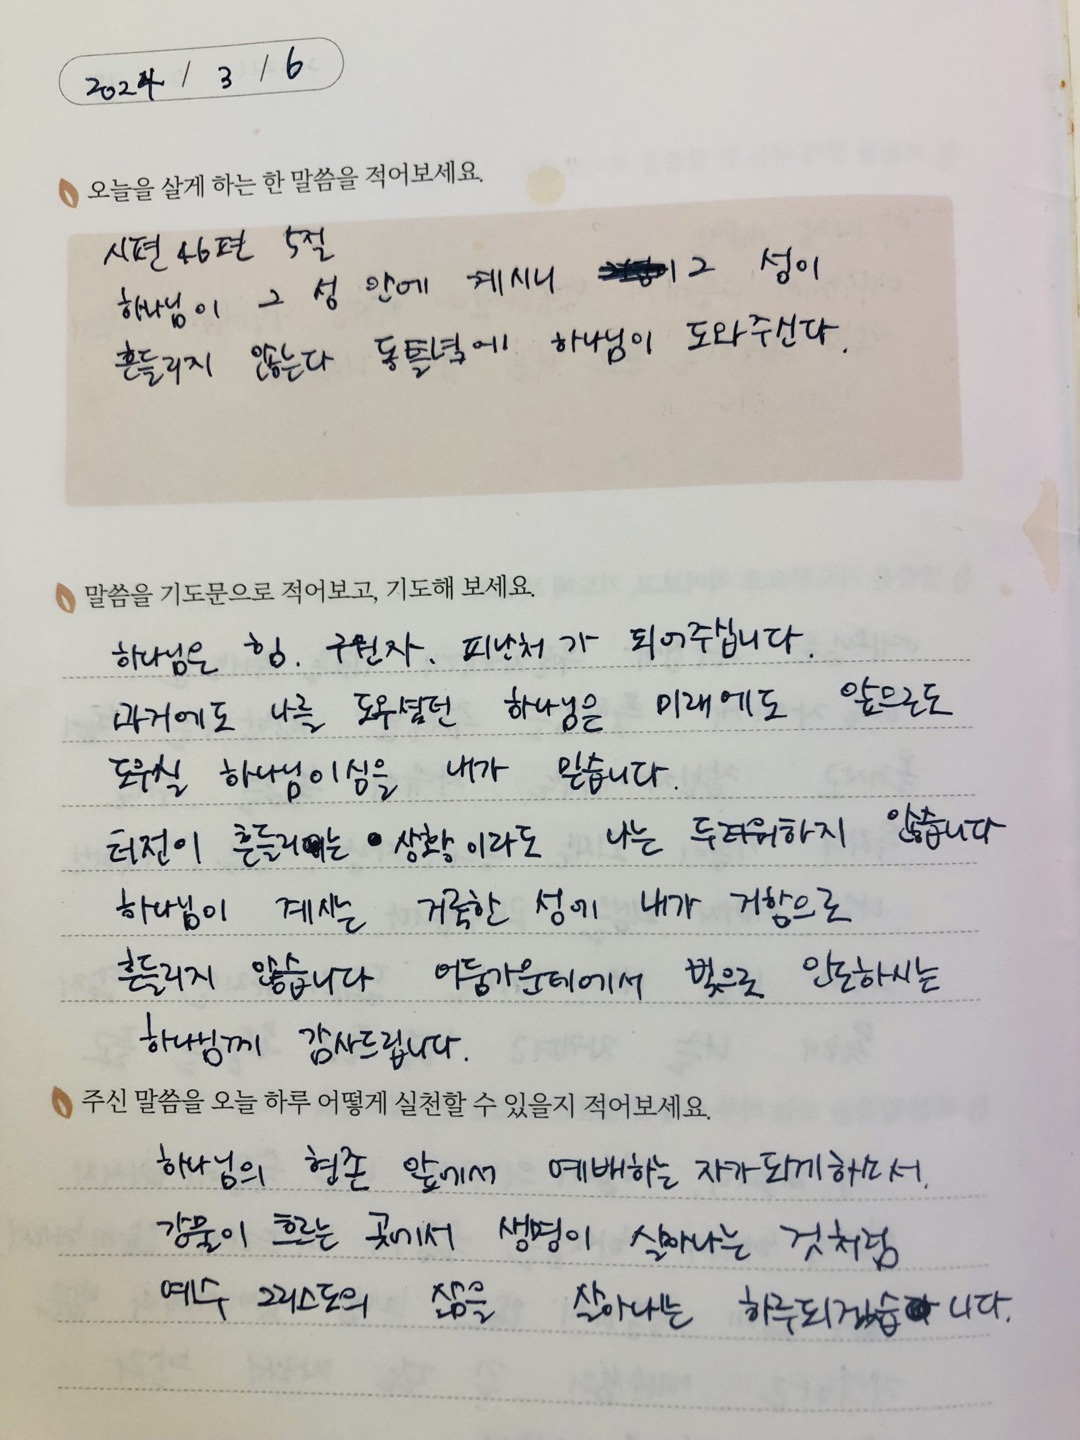 2024 / 3 / 6
오늘을 살게 하는 한 말씀을 적어보세요.
시편 46편 5절
하나님이 그 성 안에 계시니 그 성이
흔들리지 않는다 동틀녘에 하나님이 도와주신다.
말씀을 기도문으로 적어보고, 기도해 보세요.
하나님은 힘. 구원자. 피난처가 되어주십니다.
과거에도 나를 도우셨던 하나님은 미래에도 앞으로도
도우실 하나님이심을 내가 믿습니다.
터전이 흔들리는 상황이라도 나는 두려워하지 않습니다
하나님이 계시는 거룩한 성에 내가 거함으로
흔들리지 않습니다 어둠가운데에서 빛으로 인도하시는
하나님께 감사드립니다.
주신 말씀을 오늘 하루 어떻게 실천할 수 있을지 적어보세요.
하나님의 현존 앞에서 예배하는 자가되게하소서.
강물이 흐르는 곳에서 생명이 살아나는 것처럼
예수 그리스도의 삶을 살아내는 하루되겠습니다.